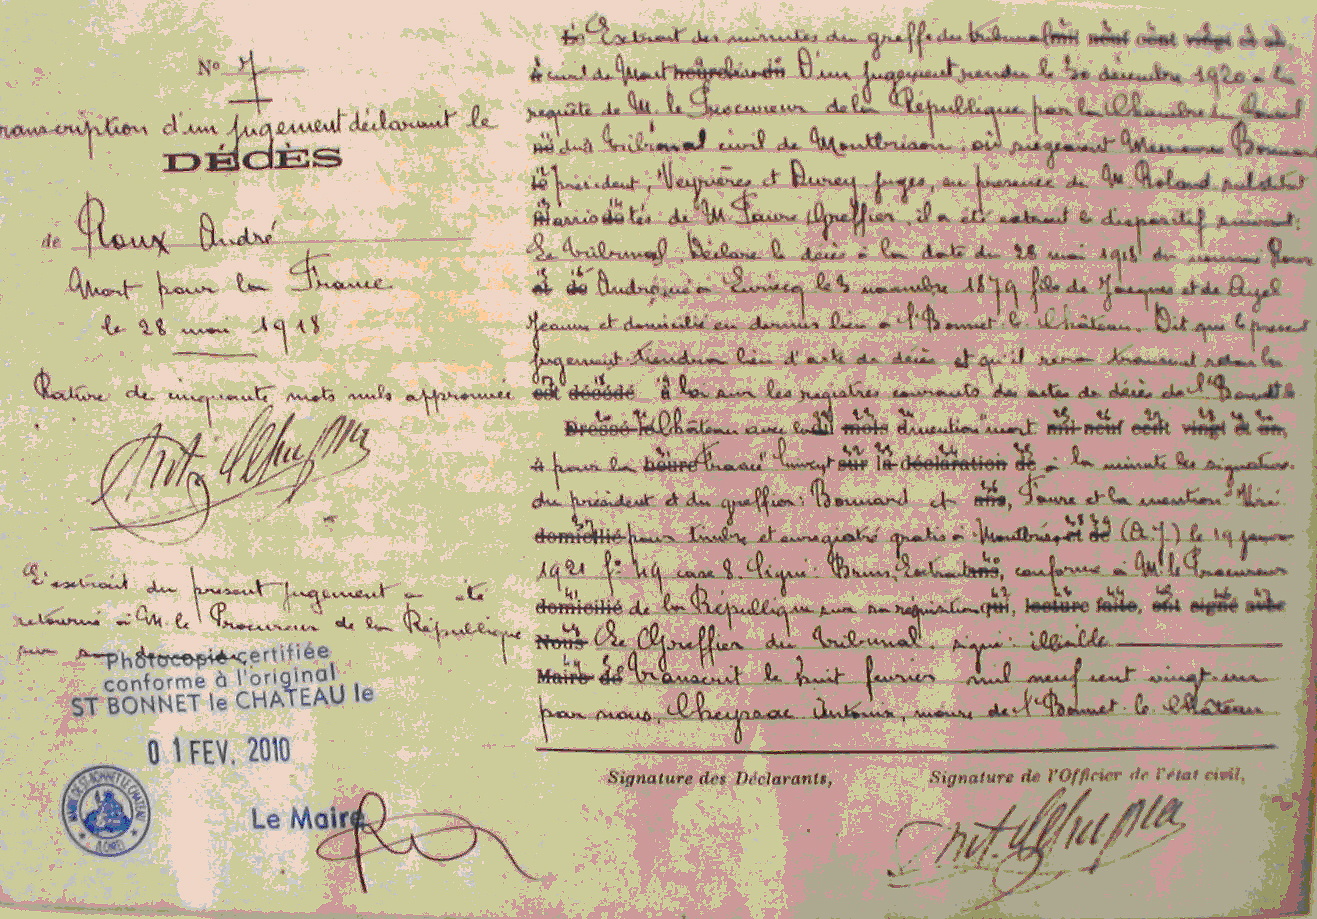 N° 7
transcription d'un jugement déclarant le
DÉCÈS
de Roux André
Mort pour la France
le 28 mai 1918
Rature de cinquante mots nuls approuvée
L'extrait du présent jugement a été
retourné à M. le Procureur de la République
Photocopie certifiée
conforme à l'original
ST BONNET le CHATEAU le
0 1 FEV. 2010
MAIRIE DE ST-BONNET LE CHATEAU
(LOIRE)
Le Maire
Extrait des minutes du greffe du tribunal
civil de Montbrison D'un jugement rendu le 30 décembre 1920 à la
requête de M. le Procureur de la République par la Chambre du Conseil
du Tribunal civil de Montbrison, où siégeaient Messieurs Bonnard
président, Veyrières et Durey juges, en présence de M. Roland substitut
assistés de M. Faure Greffier il a été extrait le dispositif suivant:
Le Tribunal Déclare le décès à la date du 28 mai 1918 du nommé Roux
André né à le 3 novembre 1879 fils de Jacques et de
Jeanne et domicilié en dernier lieu à St Bonnet-le-Château. Dit que le présent
jugement tiendra lieu d'acte de décès et qu'il sera transcrit
sur les registres courants des actes de décès de St Bonnet-le
Dressé le Château avec mots mention "mort mil neuf cent vingt et un,
pour la heure France" sur la déclaration de à la minute les signatures
du président et du greffier: Bonnard et Faure et la mention "Visé
domicilié pour timbre et enregistré gratis à (A.J.) le 19 janvier
1921 f° 49 case 8. Signé: Brun, Extrait conforme à M. le Procureur
domicilié de la République sur sa réquisition qui, lecture faite, ont signé avec
Nous Le Greffier du Tribunal. signé: illisible
Maire de Transcrit le huit février mil neuf cent vingt-un
par nous, Cheyssac Antoine, maire de St Bonnet-le-Château
Signature des Déclarants,
Signature de l'Officier de l'état civil,